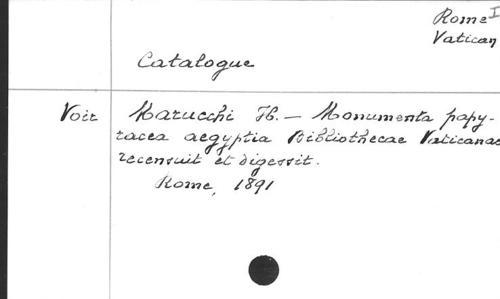 Rome I
Vatican
Catalogue
Voir Marucchi H. — Monumenta papy-
racea aegyptia Bibliothecae Vaticanae
recensuit et digessit.
Rome, 1891